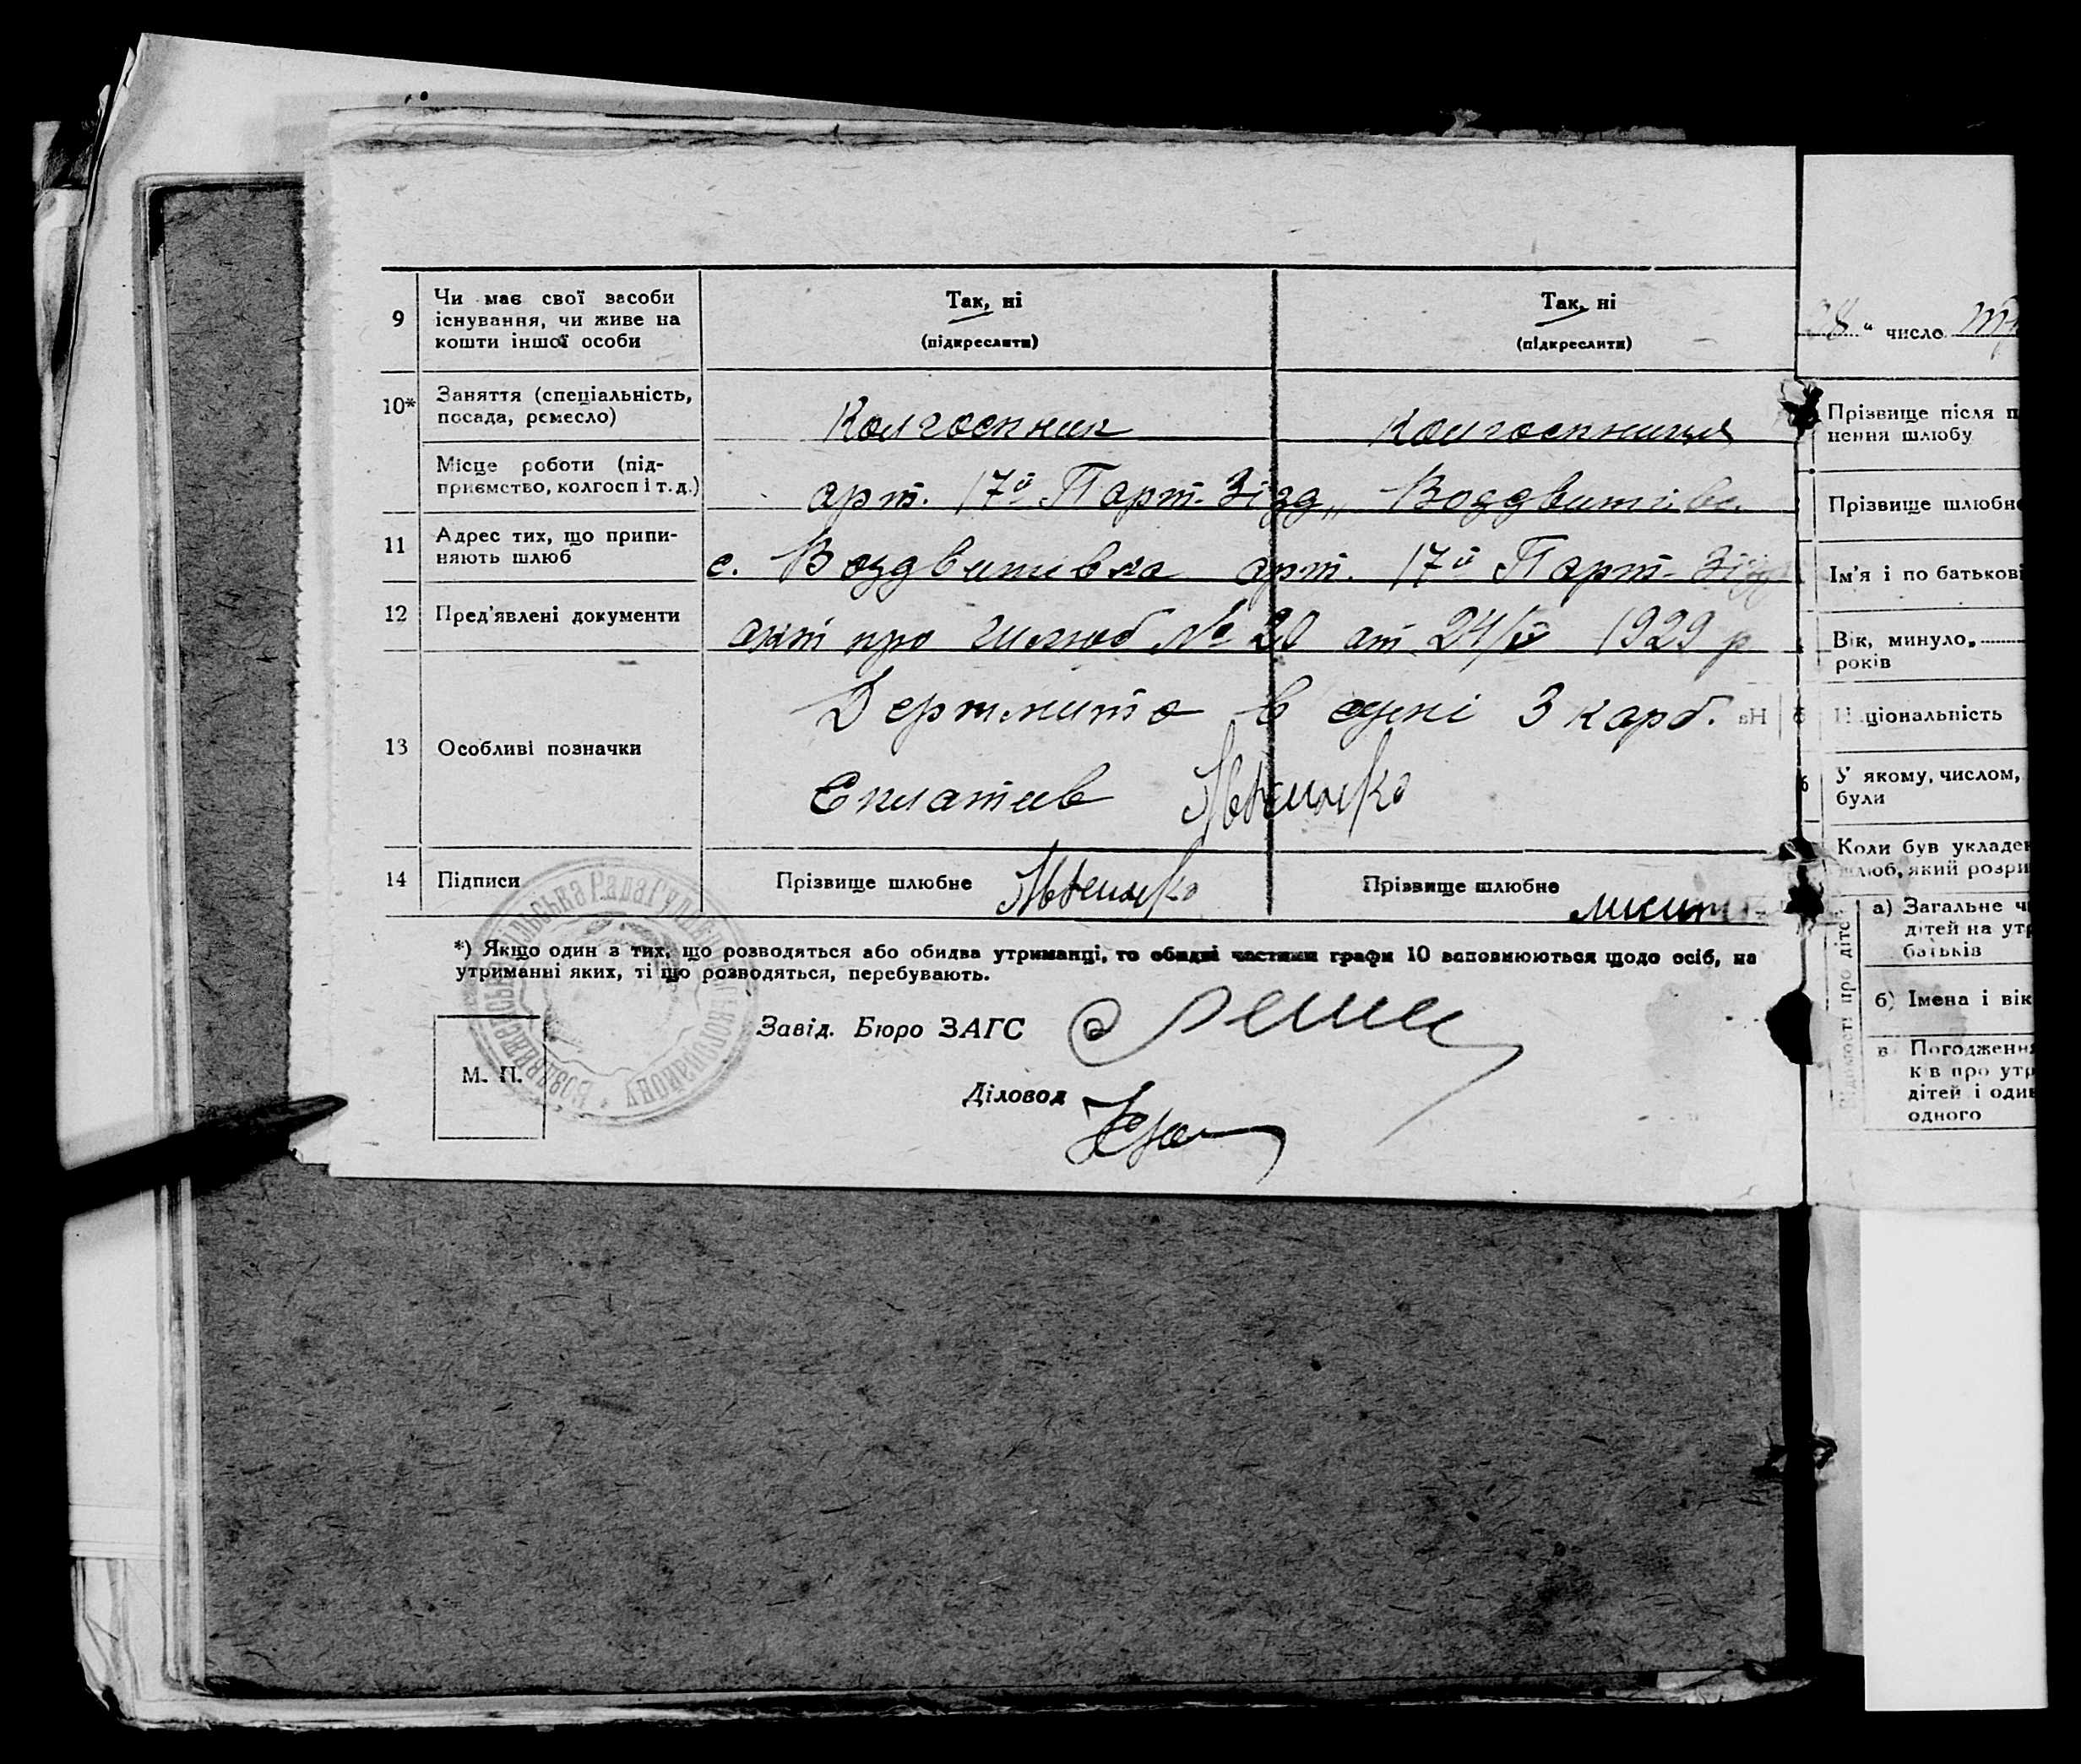 9 Чи має свої засоби існування, чи живе на кошти іншої особи
Так, ні
(підкреслити)
Так, ні
(підкреслити)
10* Заняття (спеціальність, посада, ремесло)
Колгоспник
Колгоспниця
Місце роботи (підприємство, колгосп і т.д.)
арт. 17й Парт. Зізд
11 Адрес тих, що припиняють шлюб
с. Воздвижівка арт. 17й Парт. Зізд
12 Пред'явлені документи
акт про шлюб № 20 от 24/ 1929 р
13 Особливі позначки
Держмито в сумі 3 карб.
Сплатив
14 Підписи
Прізвище шлюбне
Прізвище шлюбне
*) Якщо один з тих, що розводяться або обидва утриманці, то обидві частини графи 10 заповнюються щодо осіб, на
утриманні яких, ті що розводяться, перебувають.
Завід. Бюро ЗАГС
М. П.
Діловод
28 " число
Прізвище після п
нення шлюбу
Прізвище шлюбн
Ім'я і по батькові
Вік, минуло,
років
Національність
У якому, числом,
були
Коли був укладен
шлюб, який розри
Відомості про дітей
а) Загальне ч
дітей на утр
батьків
б) Імена і вік
в Погодження
ків про утр
дітей і один
одного